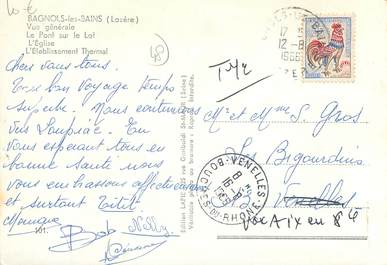 10 €
BAGNOLS-les-BAINS (Lozère)
Vue générale
Le Pont sur le Lot
L'Eglise
L'Etablissement Thermal
Chers vous tous.
Très bon voyage temps
superbe. Nous continuons
vers Loupiac. En
vous espérant tous en
bonne santé nous
vous embrassons affectueusement
et surtout Titit.
Monique
Bob
Nelly
101.
TMZ
Mr et Mme S. Gros
Les Bigourdins
Venelles
par Aix en
12-8
1966
VENELLES
BOUCHES-DU-RHONE